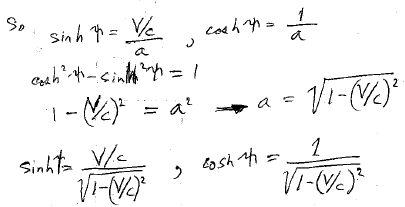 So sinh ψ = (V/c)/a , cosh ψ = 1/a
cosh²ψ - sinh²ψ = 1
1 - (V/c)² = a² → a = √(1-(V/c)²)
sinh ψ = (V/c)/√(1-(V/c)²) , cosh ψ = 1/√(1-(V/c)²)